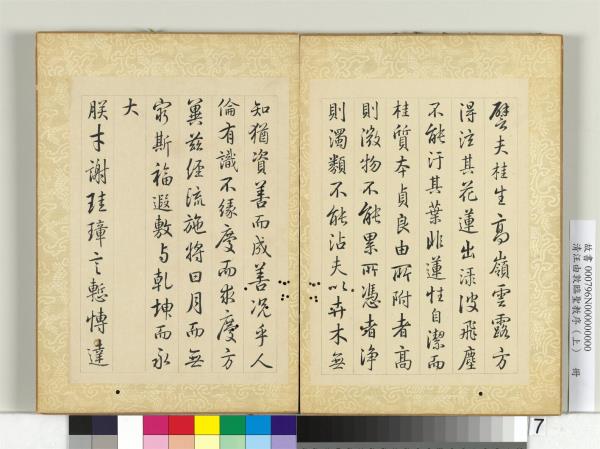 譬夫桂生高嶺雲露方
得注其花蓮出淥波飛塵
不能汙其葉非蓮性自潔而
桂質本貞良由所附者高
則微物不能累所憑者淨
則濁類不能沾夫以卉木無
知猶資善而成善況乎人
倫有識不緣慶而求慶方
冀茲經流施將日月而無
窮斯福遐敷与乾坤而永
大
朕才謝珪璋言慙博達
故書 000796N000000000
清汪由敦臨聖教序（上） 冊
7